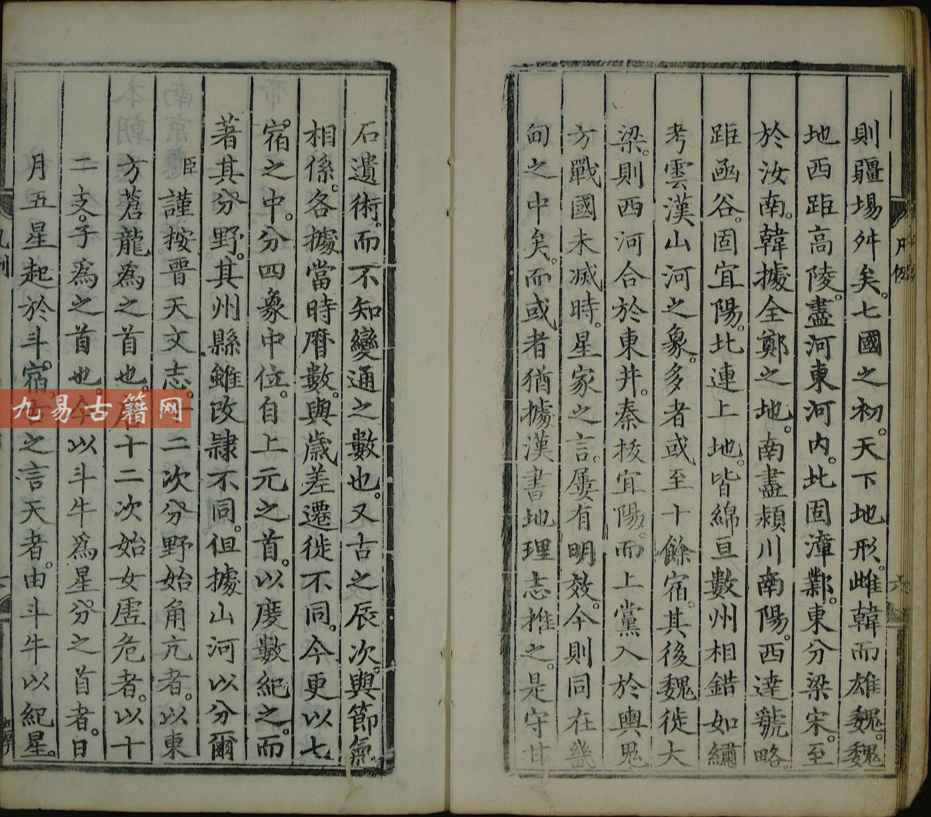 則疆場舛矣。七國之初。天下地形。雌韓而雄魏。魏
地西距高陵。盡河東河内。北固漳鄴。東分梁宋。至
於汝南。韓據全鄭之地。南盡潁川南陽。西達虢略。
距函谷。固宜陽。北連上地。皆綿亘數州。相錯如繡。
考雲漢山河之象。多者或至十餘宿。其後魏徙大
梁。則西河合於東井。秦拔宜陽。而上黨入於輿鬼。
方戰國未滅時。星家之言。屢有明效。今則同在畿
甸之中矣。而或者猶據漢書地理志推之。是守甘
石遺術。而不知變通之數也。又古之辰次。與節氣
相係。各據當時曆數。與歲差遷徙不同。今更以七
宿之中。分四象中位。自上元之首。以度數紀之。而
著其分野。其州縣雖改隷不同。但據山河以分爾
臣謹按晋天文志。十二次分野始角亢者。以東
方蒼龍為之首也。唐十二次始女虚危者。以十
二支。子為之首也。今以斗牛為星分之首者。日
月五星起於斗。宿。古之言天者。由斗牛以紀星。
凡例
九易古籍网